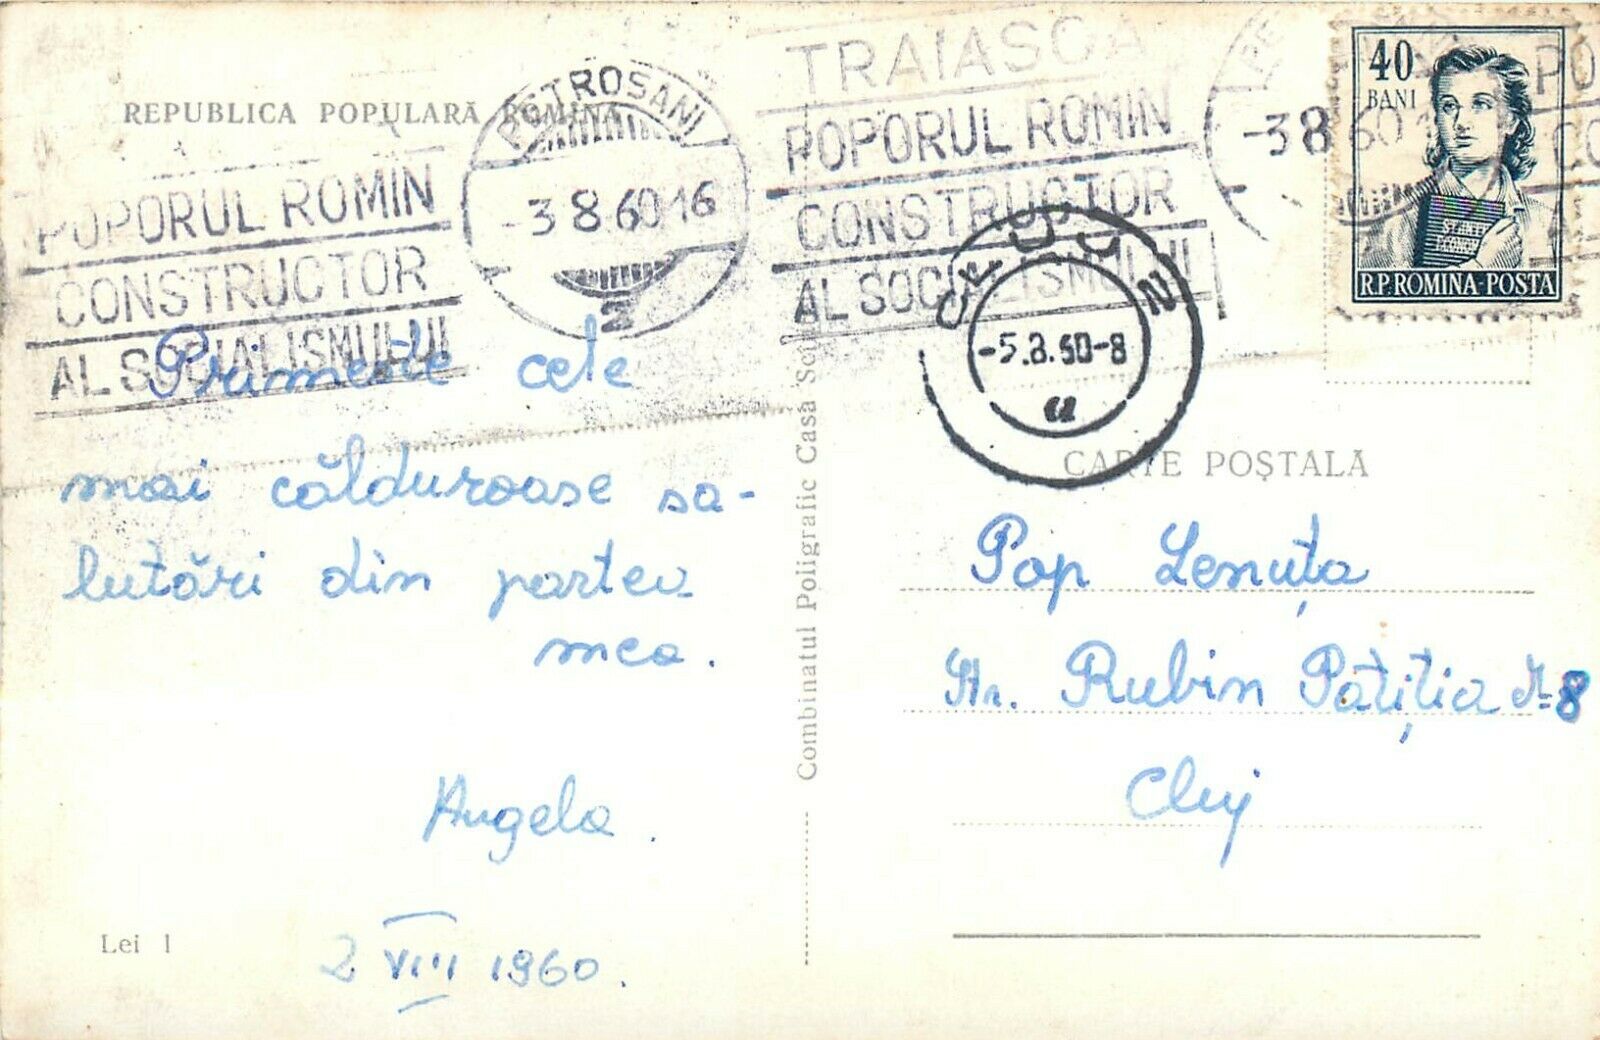 REPUBLICA POPULARĂ ROMINĂ
POPORUL ROMIN
CONSTRUCTOR
AL SOCIALISMULUI
PETROȘANI
-3.8.60.16
TRAIASCA
POPORUL ROMIN
CONSTRUCTOR
AL SOCIALISMULUI
-3.8.60
PO
CO
40
BANI
R.P.ROMINA-POSTA
CLUJ 2
-5.8.60-8
a
Primește cele
mai călduroase sa-
lutări din partea
mea.
Angela.
2 VIII 1960.
Lei 1
Combinatul Poligrafic Casa
CARTE POȘTALĂ
Pop Lenuța
Str. Rubin Patiția Nr 8
Cluj